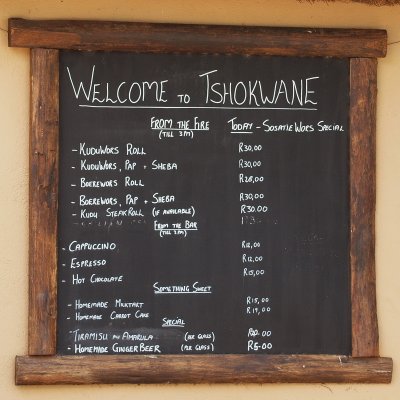 WELCOME TO TSHOKWANE
FROM THE FIRE
(TILL 3PM)
TODAY - SOSATIE WORS SPECIAL
- KUDUWORS ROLL R30,00
- KUDUWORS, PAP + SHEBA R30,00
- BOEREWORS ROLL R28,00
- BOEREWORS, PAP + SHEBA R30,00
- KUDU STEAK ROLL (IF AVAILABLE) R30.00
FROM THE BAR
(TILL 3PM)
- CAPPUCCINO R12,00
- ESPRESSO R12,00
- HOT CHOCOLATE R15,00
SOMETHING SWEET
- HOMEMADE MILKTART R15,00
- HOMEMADE CARROT CAKE R17,00
SPECIAL
- TIRAMISU AMARULA (PER GLASS)
- HOMEMADE GINGER BEER (PER GLASS)